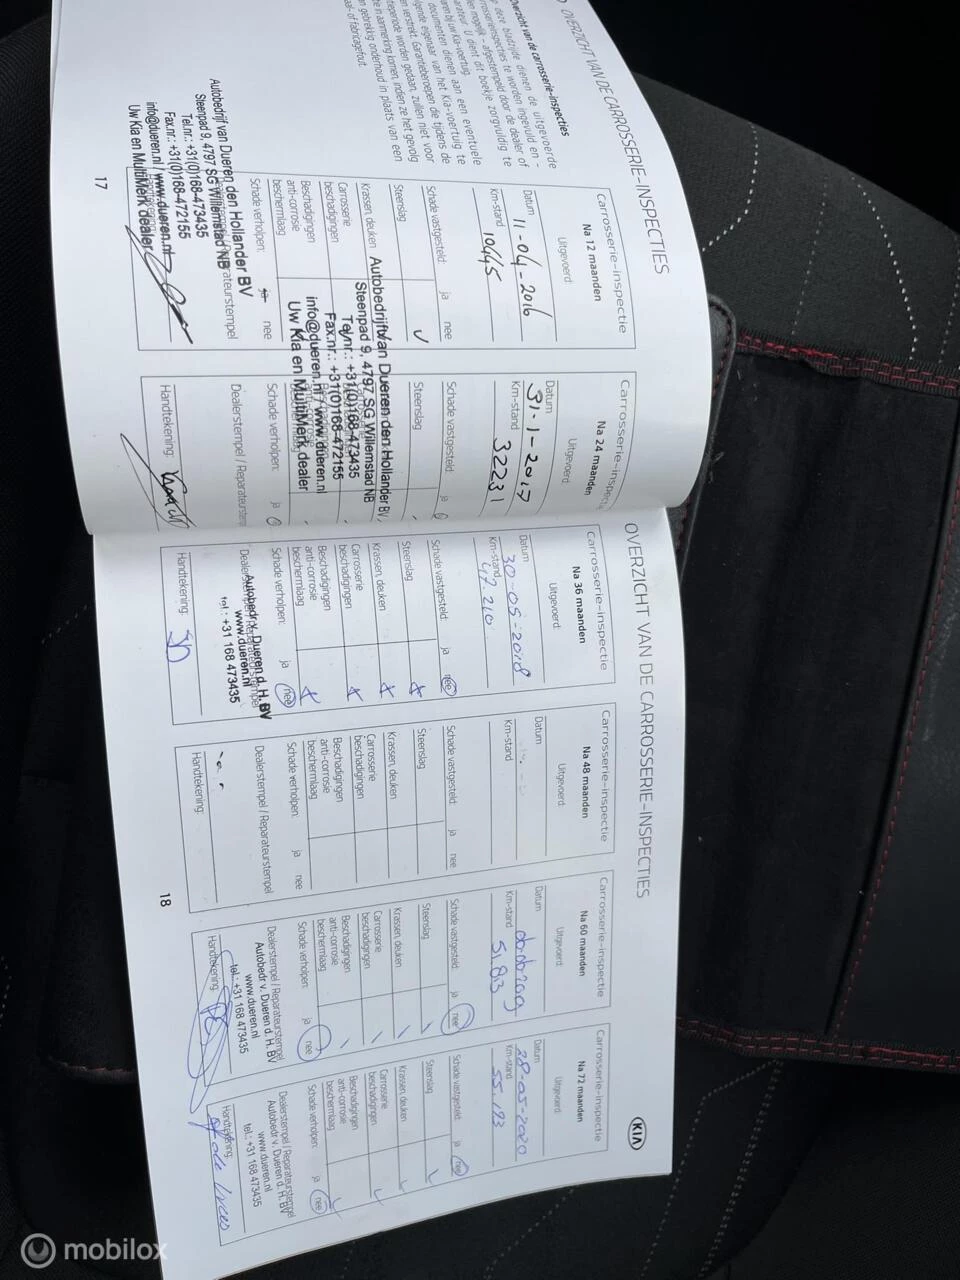 OVERZICHT VAN DE CARROSSERIE-INSPECTIES
Overzicht van de carrosserie-inspecties
deze bladzijde dienen de uitgevoerde
rrosserieinspecties te worden ingevuld en -
en mogelijk - afgestempeld door de dealer of
arateur. U dient dit boekje zorgvuldig te
aren bij uw Kia-voertuig.
documenten dienen aan een eventuele
lgende eigenaar van het Kia-voertuig te
en verstrekt. Garantieberoepen die tijdens de
tieperiode worden gedaan, zullen niet voor
tie in aanmerking komen, indien ze het gevolg
an gebrekkig onderhoud in plaats van een
aal- of fabricagefout.
Carrosserie-inspectie
Na 12 maanden
Uitgevoerd:
Datum 11-04-2016
Km-stand 10445
Schade vastgesteld: ja nee
Steenslag
Krassen, deuken
Carrosserie
beschadigingen
Beschadigingen
anti-corrosie
beschermlaag
Schade verholpen: ja nee
Autobedrijf van Dueren den Hollander BV
Steenpad 9, 4797 SG Willemstad NB
Tel.nr.: +31(0)168-473435
Fax.nr.: +31(0)168-472155
info@dueren.nl / www.dueren.nl
Uw Kia en MultiMerk dealer
17
Carrosserie-inspectie
Na 24 maanden
Uitgevoerd:
Datum 31-1-2017
Km-stand 32231
Schade vastgesteld: ja
Steenslag
Autobedrijf van Dueren den Hollander BV
Steenpad 9, 4797 SG Willemstad NB
Tel.nr.: +31(0)168-473435
Fax.nr.: +31(0)168-472155
info@dueren.nl / www.dueren.nl
Uw Kia en MultiMerk dealer
Schade verholpen: ja
Dealerstempel / Reparateurstem
Handtekening:
OVERZICHT VAN DE CARROSSERIE-INSPECTIES
Carrosserie-inspectie
Na 36 maanden
Uitgevoerd:
Datum 30-05-2018
Km-stand 47.210
Schade vastgesteld: ja nee
Steenslag
Krassen, deuken
Carrosserie
beschadigingen
Beschadigingen
anti-corrosie
beschermlaag
Schade verholpen: ja nee
Dealerstempel / Reparateurstempel
Autobedr. v. Dueren d. H. BV
www.dueren.nl
tel.: +31 168 473435
Handtekening:
Carrosserie-inspectie
Na 48 maanden
Uitgevoerd:
Datum
Km-stand
Schade vastgesteld: ja nee
Steenslag
Krassen, deuken
Carrosserie
beschadigingen
Beschadigingen
anti-corrosie
beschermlaag
Schade verholpen: ja nee
Dealerstempel / Reparateurstempel
Handtekening:
18
Carrosserie-inspectie
Na 60 maanden
Uitgevoerd:
Datum
Km-stand 51.813
Schade vastgesteld: ja nee
Steenslag
Krassen, deuken
Carrosserie
beschadigingen
Beschadigingen
anti-corrosie
beschermlaag
Schade verholpen: ja nee
Dealerstempel / Reparateurstempel
Autobedr v. Dueren d. H. BV
www.dueren.nl
tel.: +31 168 473435
Handtekening:
KIA
Carrosserie-inspectie
Na 72 maanden
Uitgevoerd:
Datum 28-05-2020
Km-stand 55.123
Schade vastgesteld: ja nee
Steenslag
Krassen, deuken
Carrosserie
beschadigingen
Beschadigingen
anti-corrosie
beschermlaag
Schade verholpen: ja nee
Dealerstempel / Reparateurstempel
Autobedr v. Dueren d. H. BV
www.dueren.nl
tel.: +31 168 473435
Handtekening:
mobilox